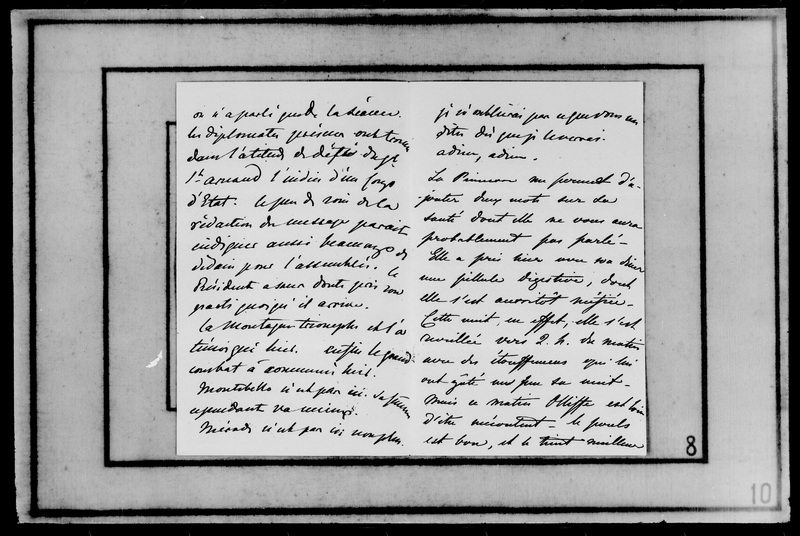 on n'a parlé que de la séance.
les diplomates présens ont trouvé
dans l'attitude de défi du gl
St. arnaud l'indice d'un coup
d'Etat. le peu de soin de la
rédaction du message parait
indiquer aussi beaucoup de
dédain pour l'assemblée. le
Président a sans doute pris son
parti quoiqu'il arrive.
la Montagne triomphe et l'a
témoigné hier. enfin le grand
combat a commencé hier.
Montebello n'est pas ici. sa femme
cependant va mieux.
Mérode n'est pas ici non plus.
je n'oublierai pas ce que vous me
dites dès que je le verrai.
adieu, adieu.
La Princesse me permet d'a-
jouter deux mots sur sa
santé dont elle ne vous aura
probablement pas parlé -
Elle a pris hier avec son diner
une pillule digestive, dont
elle s'est aussitôt
Cette nuit, en effet, elle s'est
réveillée vers 2. h. du matin
avec des étouffemens qui lui
ont gâté un peu sa nuit -
Mais ce matin Olliffe est loin
d'être mécontent - le pouls
est bon, et le teint meilleur
8
10